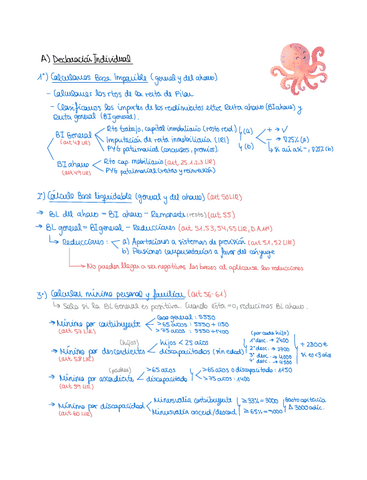 A) Declaración Individual
1º) Calculamos Base Imponible (general y del ahorro)
- Calculamos los rtos de la renta de Pilar
- Clasificamos los importes de los rendimientos entre Renta ahorro (BI ahorro) y
Renta general (BI general).
BI General (art. 48 LIR)
Rto trabajo, capital inmobiliario (resto rend)
Imputación de renta inmobiliaria
PyG patrimonial (concursos, premios)
(a)
(b)
+ → ✓
25% (a)
BI ahorro (art. 49 LIR)
Rto cap. mobiliario (art. 25.1,2,3 LIR)
PyG patrimonial (restos y reinversión)
2) Cálculo Base liquidable (general y del ahorro) (art 50 LIR)
→ BL del ahorro = BI ahorro - Remanente (resto) (art. 55)
→ BL general = BI general - Reducciones (art. 51, 53, 54, 55 LIR, D.A 11ª)
↳ Reducciones:
a) Aportaciones a sistemas de previsión (art 51, 52 LIR)
b) Pensiones compensatorias a favor del cónyuge
↳ No pueden llegar a ser negativas las bases al aplicarse las reducciones
3º) Calcular mínimo personal y familiar (art 56-61)
↳ Solo si la BL General es positiva. Cuando esta = 0, reducimos BL ahorro.
→ Mínimo por contribuyente (art. 57 LIR)
Caso general: 5550
> 65 años: 5550 + 1150
> 75 años: 5550 + 1400
→ Mínimo por descendientes (art. 58 LIR)
(hijos)
hijos < 25 años
discapacitados (sin edad)
(por cada hijo)
1º desc. → 2400
2º desc. → 2700
3º desc. → 4000
4º desc. → 4500
+ 2800 €
si es < 3 años
→ Mínimo por ascendiente (art. 59 LIR)
(padres)
> 65 años
discapacitado
> 65 años o discapacitado: 1150
> 75 años: + 1400
→ Mínimo por discapacidad (art. 60 LIR)
Minusvalía contribuyente
Minusvalía ascend/descend.
≥ 33% = 3000
≥ 65% = 9000
Gastos asistencia
Δ 3000 adic.